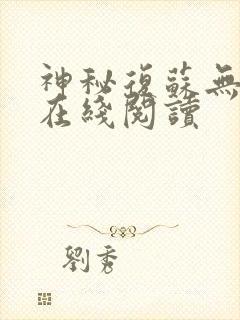 神秘復蘇無
在綫閱讀
劉秀